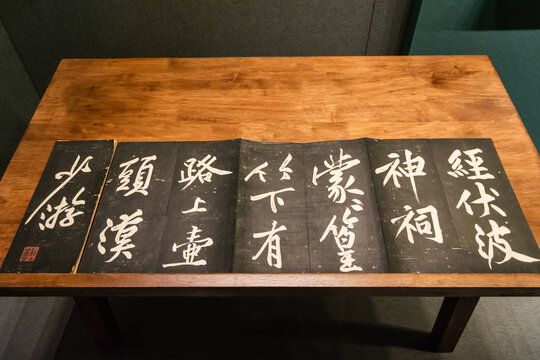 經伏波
神祠
蒙〻篁
竹下有
路上壺
頭漢
少游